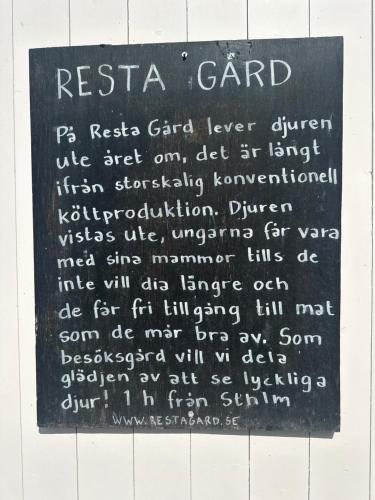 RESTA GÅRD
På Resta Gård lever djuren
ute året om, det är långt
ifrån storskalig konventionell
köttproduktion. Djuren
vistas ute, ungarna får vara
med sina mammor tills de
inte vill dia längre och
de får fri tillgång till mat
som de mår bra av. Som
besöksgård vill vi dela
glädjen av att se lyckliga
djur! 1 h från Sthlm
WWW.RESTAGARD.SE